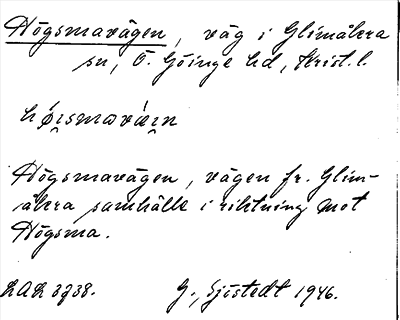 Högsmavägen, väg i Glimåkra
sn, Ö. Göinge hd, Krist. l.
Högsmavägen, vägen fr. Glim-
åkra samhälle i riktning mot
Högsma.
G. Sjöstedt 1946.